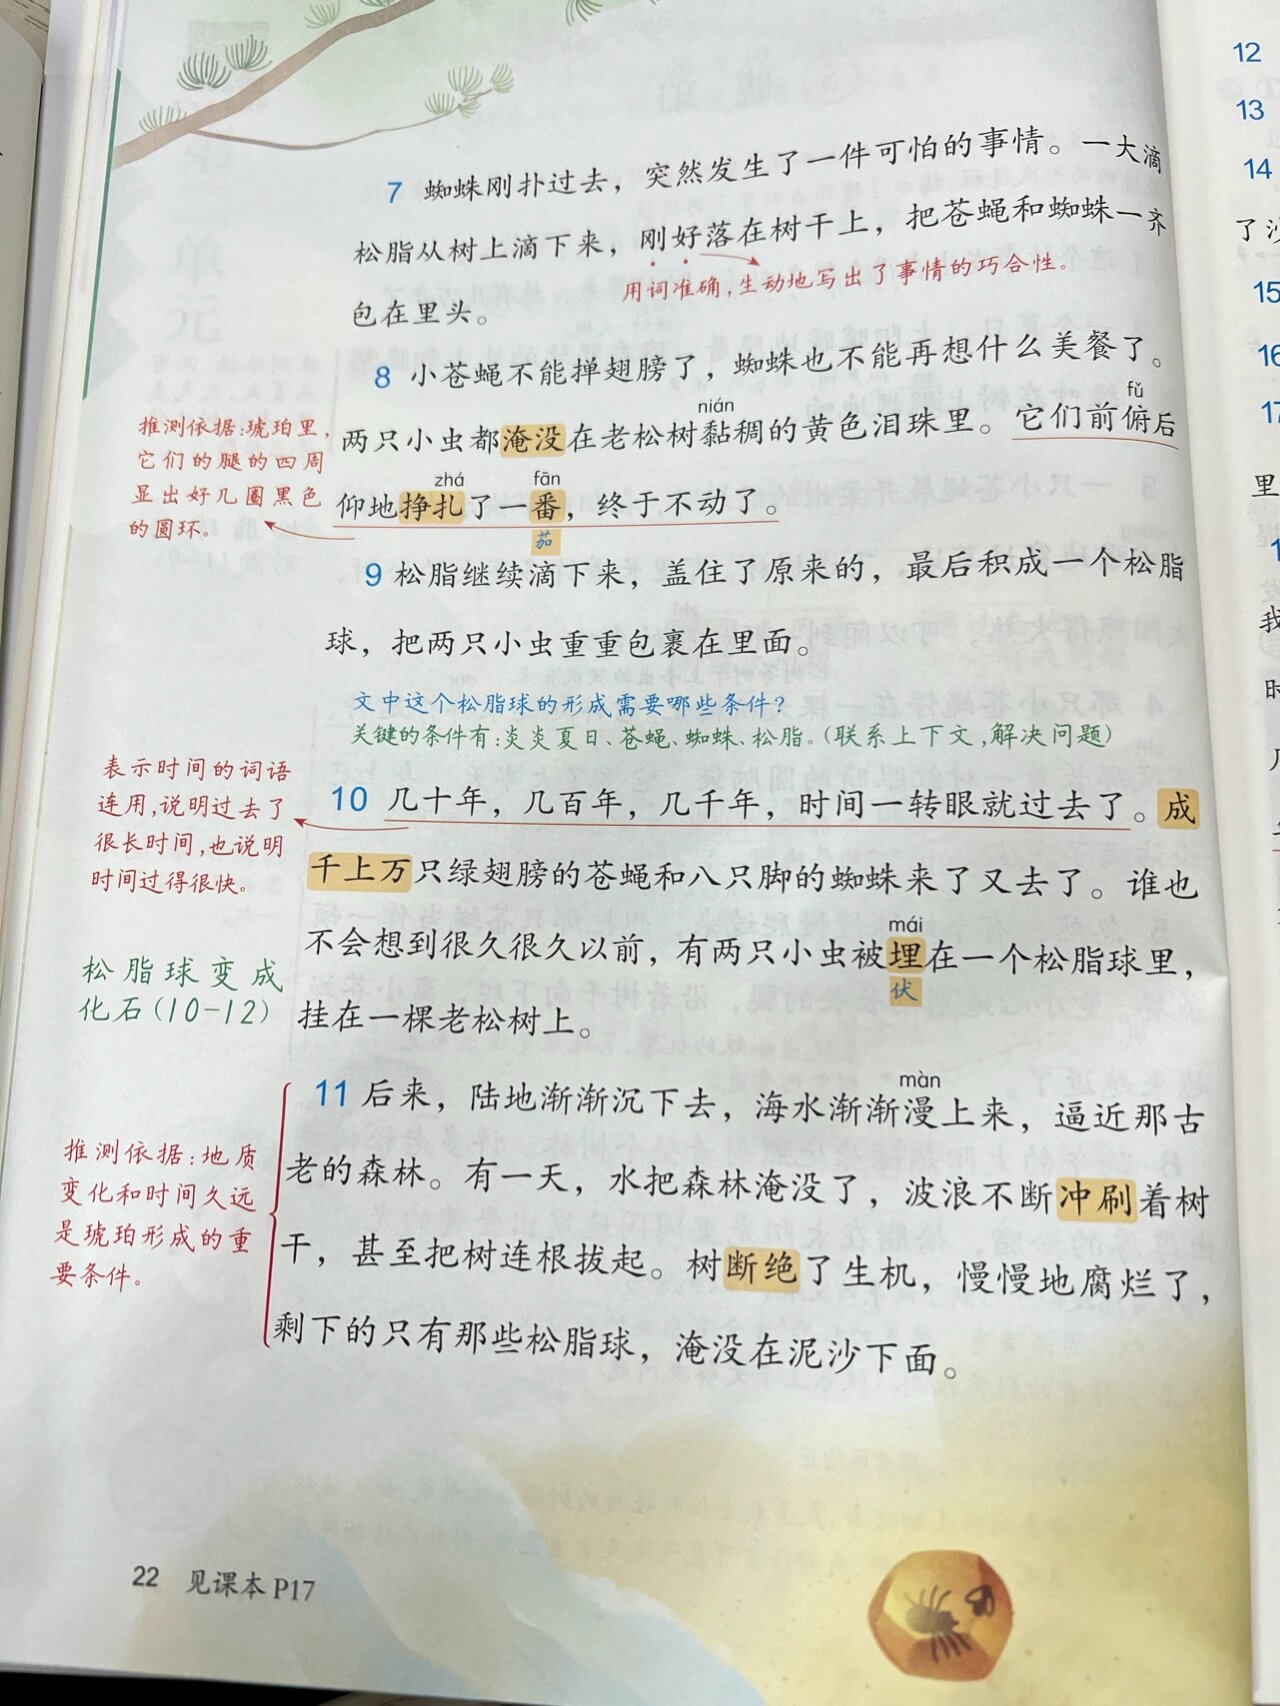 7 蜘蛛刚扑过去，突然发生了一件可怕的事情。一大滴
松脂从树上滴下来，刚好落在树干上，把苍蝇和蜘蛛一齐
用词准确，生动地写出了事情的巧合性。
包在里头。
8 小苍蝇不能掸翅膀了，蜘蛛也不能再想什么美餐了。
nián
fǔ
两只小虫都淹没在老松树黏稠的黄色泪珠里。它们前俯后
zhá
fān
仰地挣扎了一番，终于不动了。
茄
推测依据：琥珀里，
它们的腿的四周
显出好几圈黑色
的圆环。
9 松脂继续滴下来，盖住了原来的，最后积成一个松脂
球，把两只小虫重重包裹在里面。
文中这个松脂球的形成需要哪些条件？
关键的条件有：炎炎夏日、苍蝇、蜘蛛、松脂。（联系上下文，解决问题）
10 几十年，几百年，几千年，时间一转眼就过去了。成
表示时间的词语
连用，说明过去了
很长时间，也说明
时间过得很快。
千上万只绿翅膀的苍蝇和八只脚的蜘蛛来了又去了。谁也
mái
不会想到很久很久以前，有两只小虫被埋在一个松脂球里，
伏
挂在一棵老松树上。
松脂球变成
化石（10-12）
màn
11 后来，陆地渐渐沉下去，海水渐渐漫上来，逼近那古
老的森林。有一天，水把森林淹没了，波浪不断冲刷着树
干，甚至把树连根拔起。树断绝了生机，慢慢地腐烂了，
剩下的只有那些松脂球，淹没在泥沙下面。
推测依据：地质
变化和时间久远
是琥珀形成的重
要条件。
22 见课本P17
12
13
14
了沙
15
16
17
里
我
时